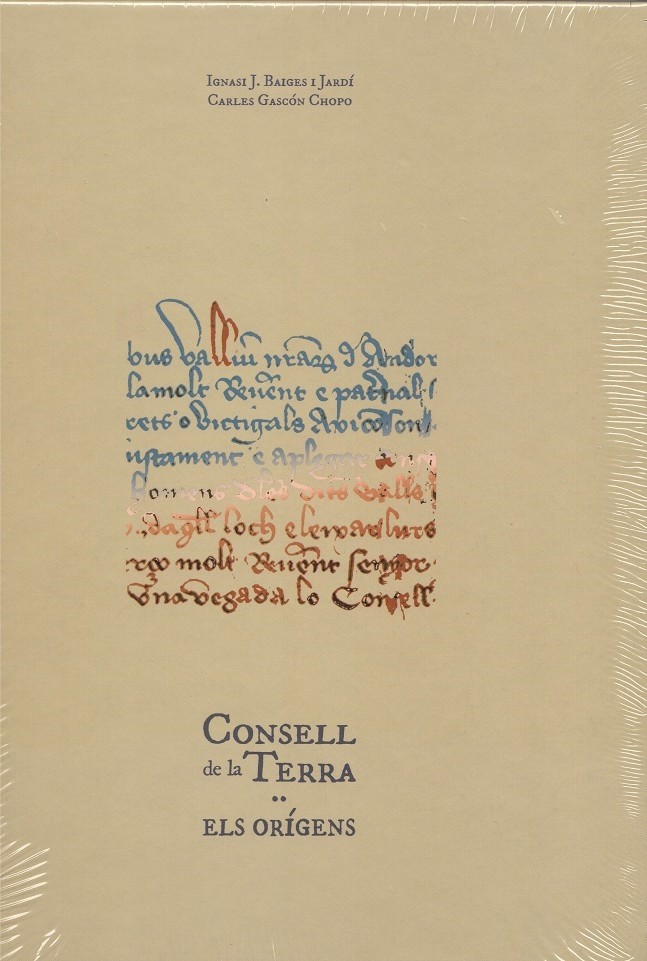 Ignasi J. Baiges i Jardí
Carles Gascón Chopo
bus valliu nrãs d Andor
lamolt Reuerent e paternal
rets o victigals
iustament e aplegar
homens dles dits valls
loch e leiuas lurs
molt Reuerent senyor
Vna vegada lo Consell
Consell
de la Terra
••
els orígens